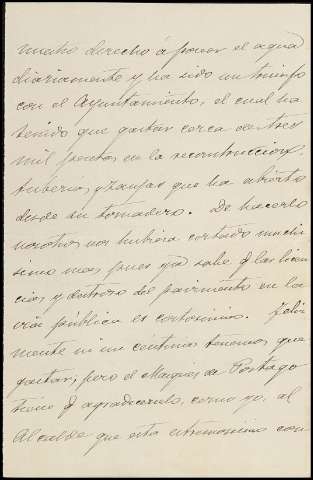 mucho derecho á poner el agua
diariamente y ha sido un triunfo
con el Ayuntamiento, el cual ha
tenido que gastar cerca de tres
mil pesetas en la reconstruccion,
tuberia, y zanjas que ha abierto
desde su tomadero. De hacerlo
nosotros nos hubiera costado muchi
simo mas pues ya sabe q las licen
cias y destrozo del pavimento en la
via pública es costosisimo. Feliz
mente ni un centimo tenemos que
gastar, pero el Marques de Portago
tiene q agradecerselo, como yo, al
Alcalde que esta atentisimo con